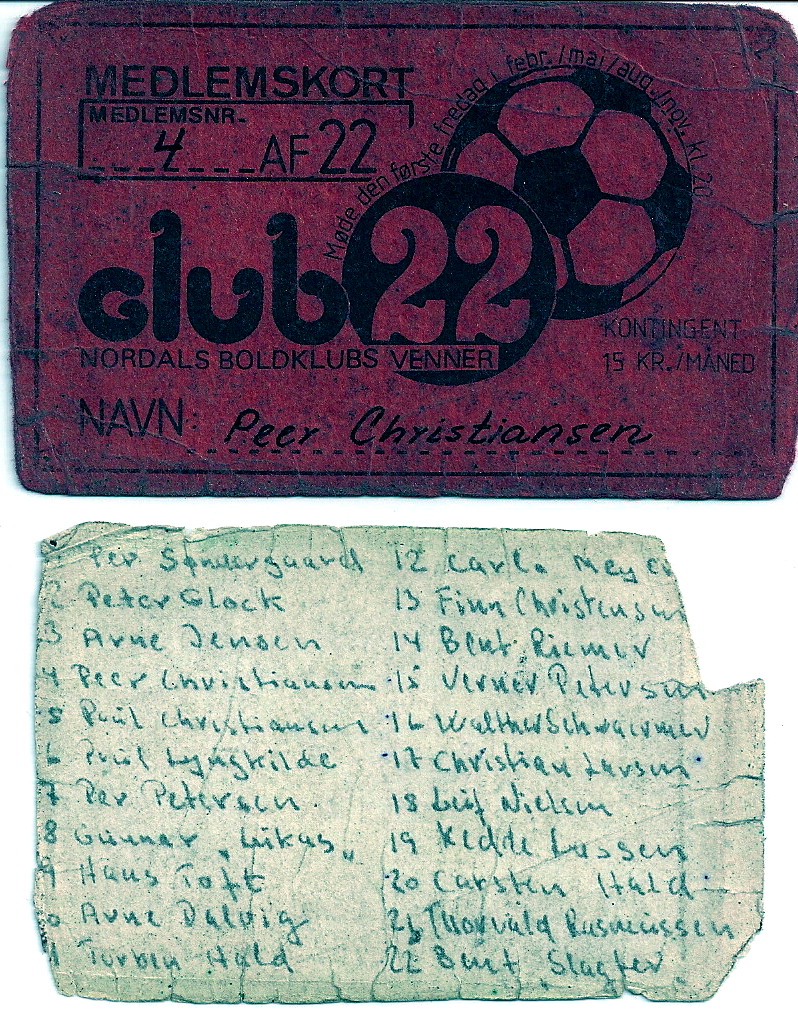 MEDLEMSKORT
MEDLEMSNR.
4 AF 22
Møde den første fredag i febr./maj/aug./nov. kl. 20
club 22
NORDALS BOLDKLUBS VENNER
KONTINGENT
15 KR./MÅNED
NAVN: Peer Christiansen
Per Søndergaard
2 Peter Glock
3 Arne Jensen
4 Peer Christiansen
5 Poul Christiansen
6 Poul Lyngkilde
7 Per Petersen
8 Gunnar "Lukas"
9 Hans Toft
Arne Dalvig
Torben Hald
12 Carl. Meyer
13 Finn Christensen
14 Bent Riemer
15 Verner Petersen
16 Walther Schwaermer
17 Christian Larsen
18 Leif Nielsen
19 Kedde Lassen
20 Carsten Hald
21 Thorvald Rasmussen
22 Bent Slagter